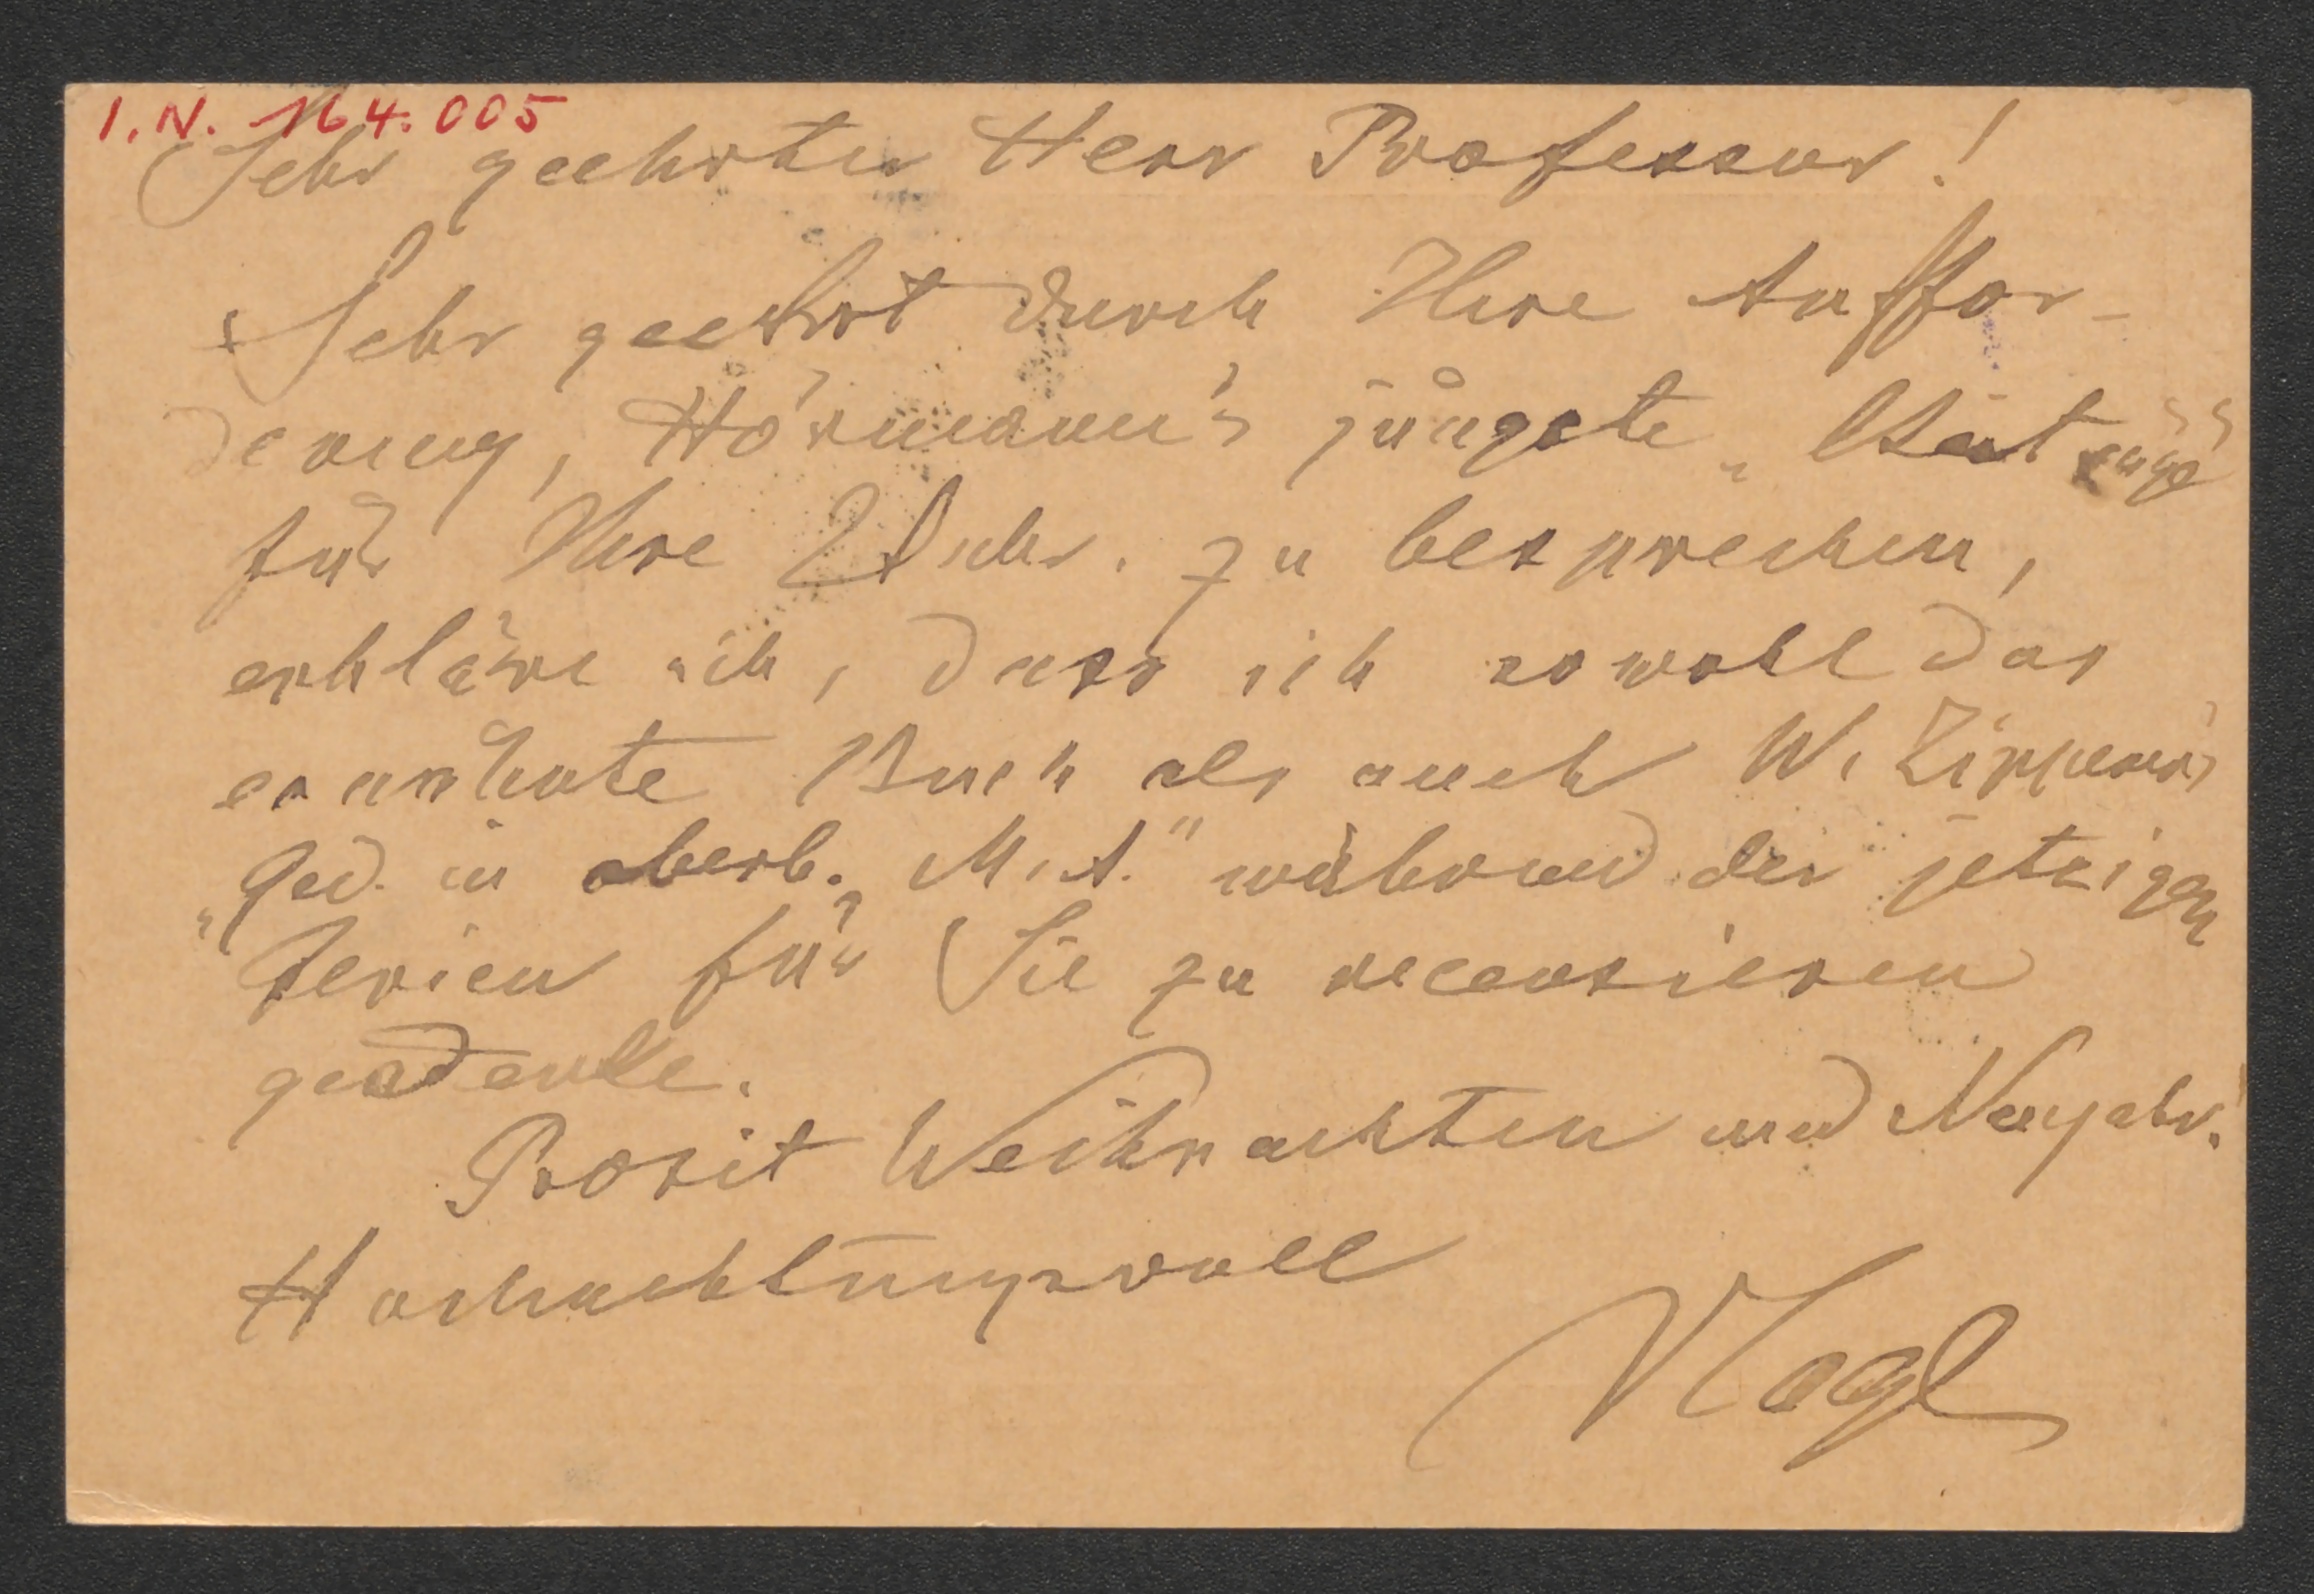 I.N. 164.005
Sehr geehrter Herr Professor!
Sehr geehrt durch Ihre Auffor-
derung, Hörmann's jüngste
für Ihre Ztschr. zu besprechen,
erkläre ich, dass ich sowohl das
erwähnte Buch als auch W.
"Ged. in oberb. M.A." während der jetzigen
Ferien für Sie zu recensieren
gedenke.
Prosit Weihnachten und Neujahr.
Hochachtungsvoll
Nagl